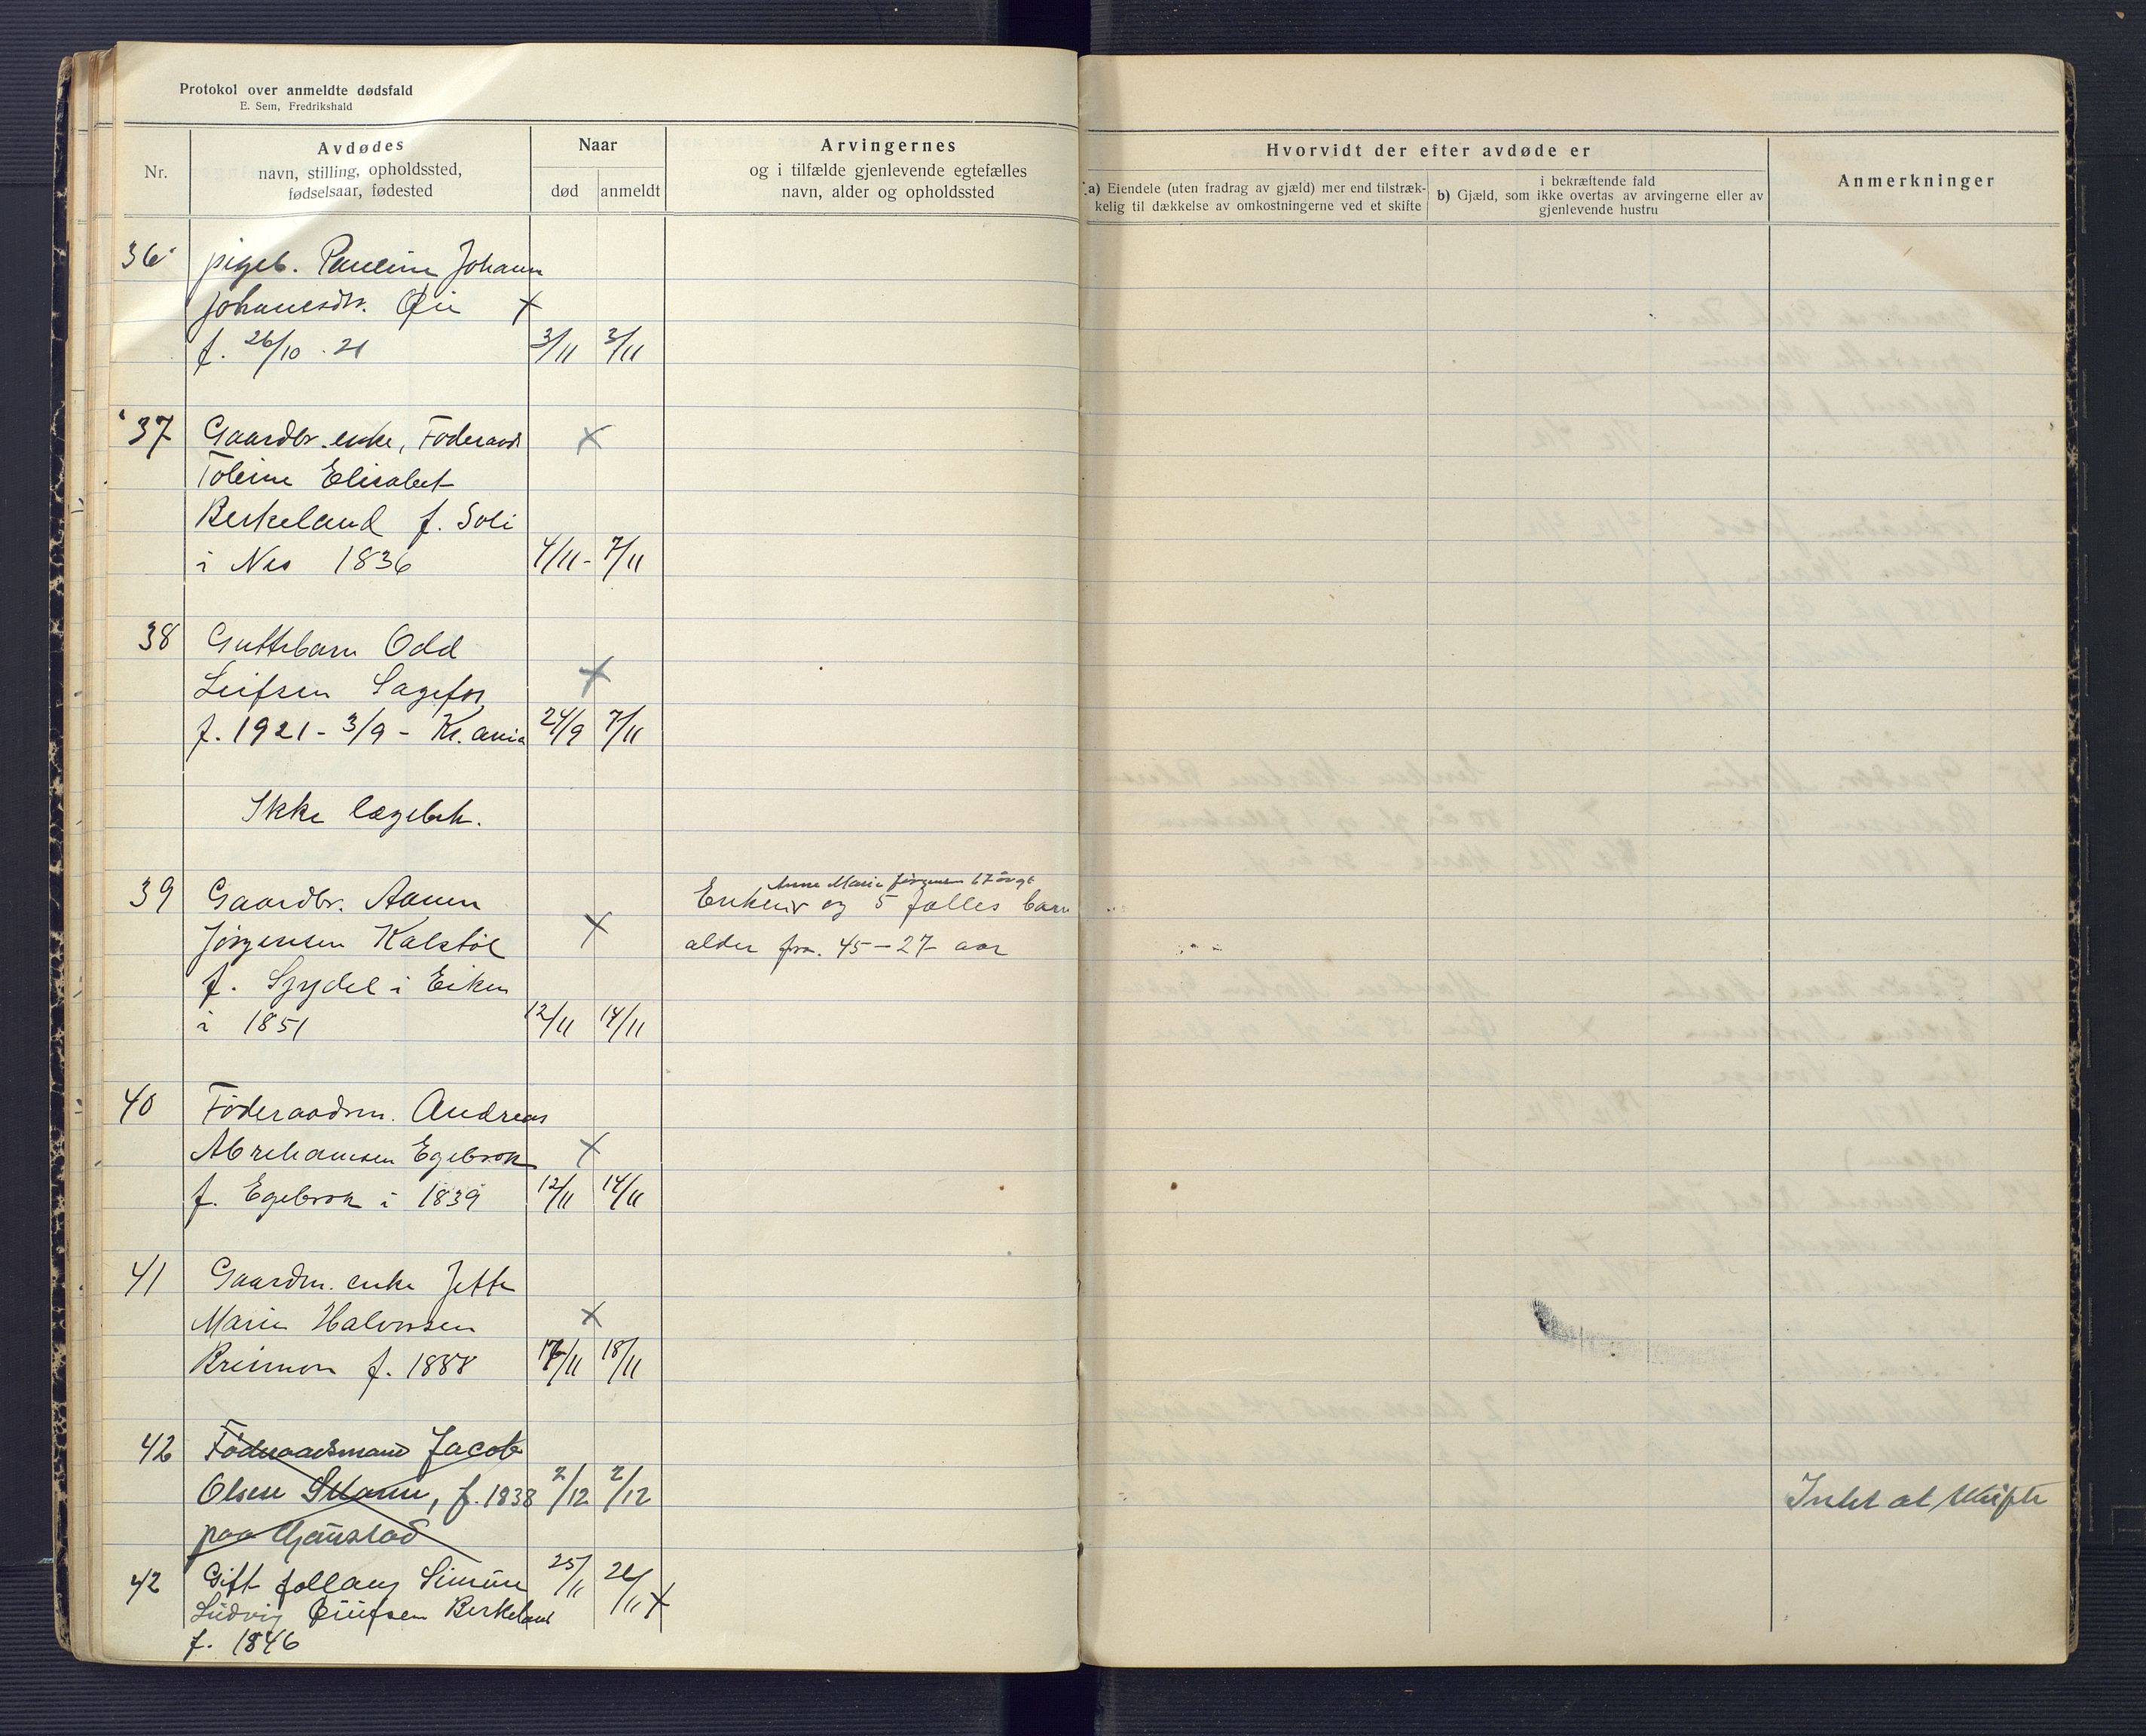 Protokol over anmeldte dødsfald
E. Sem, Fredrikshald
Nr.
Avdødes
navn, stilling, opholdssted,
fødselsaar, fødested
Naar
død
anmeldt
Arvingernes
og i tilfælde gjenlevende egtefælles
navn, alder og opholdssted
Hvorvidt der efter avdøde er
a) Eiendele (uten fradrag av gjæld) mer end tilstræk-
kelig til dækkelse av omkostningerne ved et skifte
i bekræftende fald
b) Gjæld, som ikke overtas av arvingerne eller av
gjenlevende hustru
Anmerkninger
36 pigeb. Pauline Johann
Johanesdtr. Øie x
f. 26/10 . 21 3/11 3/11
37 Gaardbr. enke, Føderaads
Toline Elisabet
Birkeland f. Soli
i Nes 1836 4/11 - 7/11
38 Guttebarn Odd
Leifsen Sagefos
f. 1921 - 3/9 - Kr.ania 24/9 7/11
Ikke lægebeh.
39 Gaardbr. Aanen
Anne Marie Jørgensen 67 årgl
Enken og 5 fælles barn
Jørgensen Kalstøl x
alder fra. 45 - 27 aar
f. Spydel i Eiken
i 1851 12/11 14/11
40 Føderaadsm. Andreas
Abrehamsen Egebrok x
f. Egebrok i 1839 12/11 14/11
41 Gaardm. enke Jette
Marie Halvorsen x
Breimon f. 1888 17/11 18/11
42 Føderaadsmand Jacob
Olsen Skaar, f. 1838 2/12 2/12 Intet at skifte
paa Gaustad
42 Gift follaug Simon 25/11
Ludvig Berkeland x
f. 1846